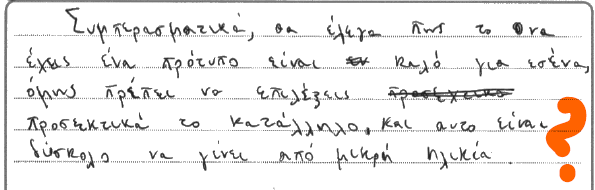 Συμπερασματικά, θα έλεγα πως το να
έχεις ένα πρότυπο είναι καλό για εσένα,
όμως πρέπει να επιλέξεις προσεχτικα
προσεκτικά το κατάλληλο, και αυτο είναι
δύσκολο να γίνει από μικρή ηλικία.
?